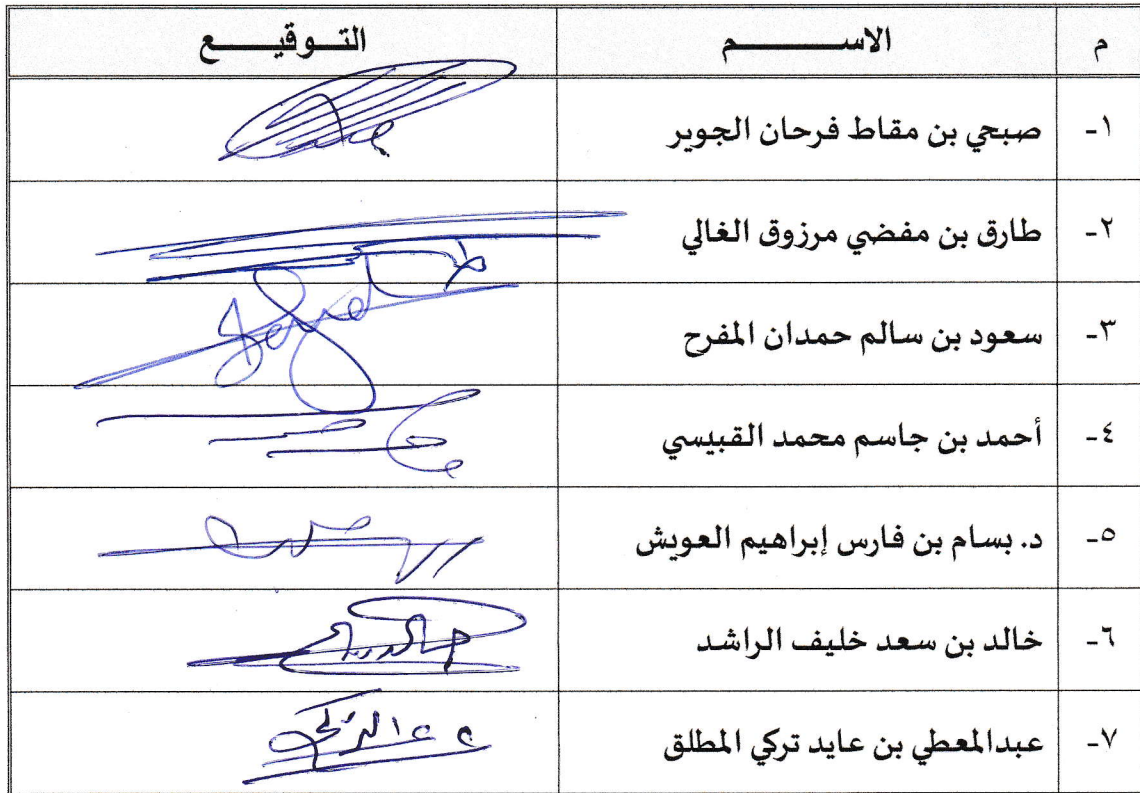 م الاســـــم التـــوقيـــع
١- صبحي بن مقاط فرحان الجوير
٢- طارق بن مفضي مرزوق الغالي
٣- سعود بن سالم حمدان المفرح
٤- أحمد بن جاسم محمد القبيسي
٥- د. بسام بن فارس إبراهيم العويش
٦- خالد بن سعد خليف الراشد
٧- عبدالمعطي بن عايد تركي المطلق